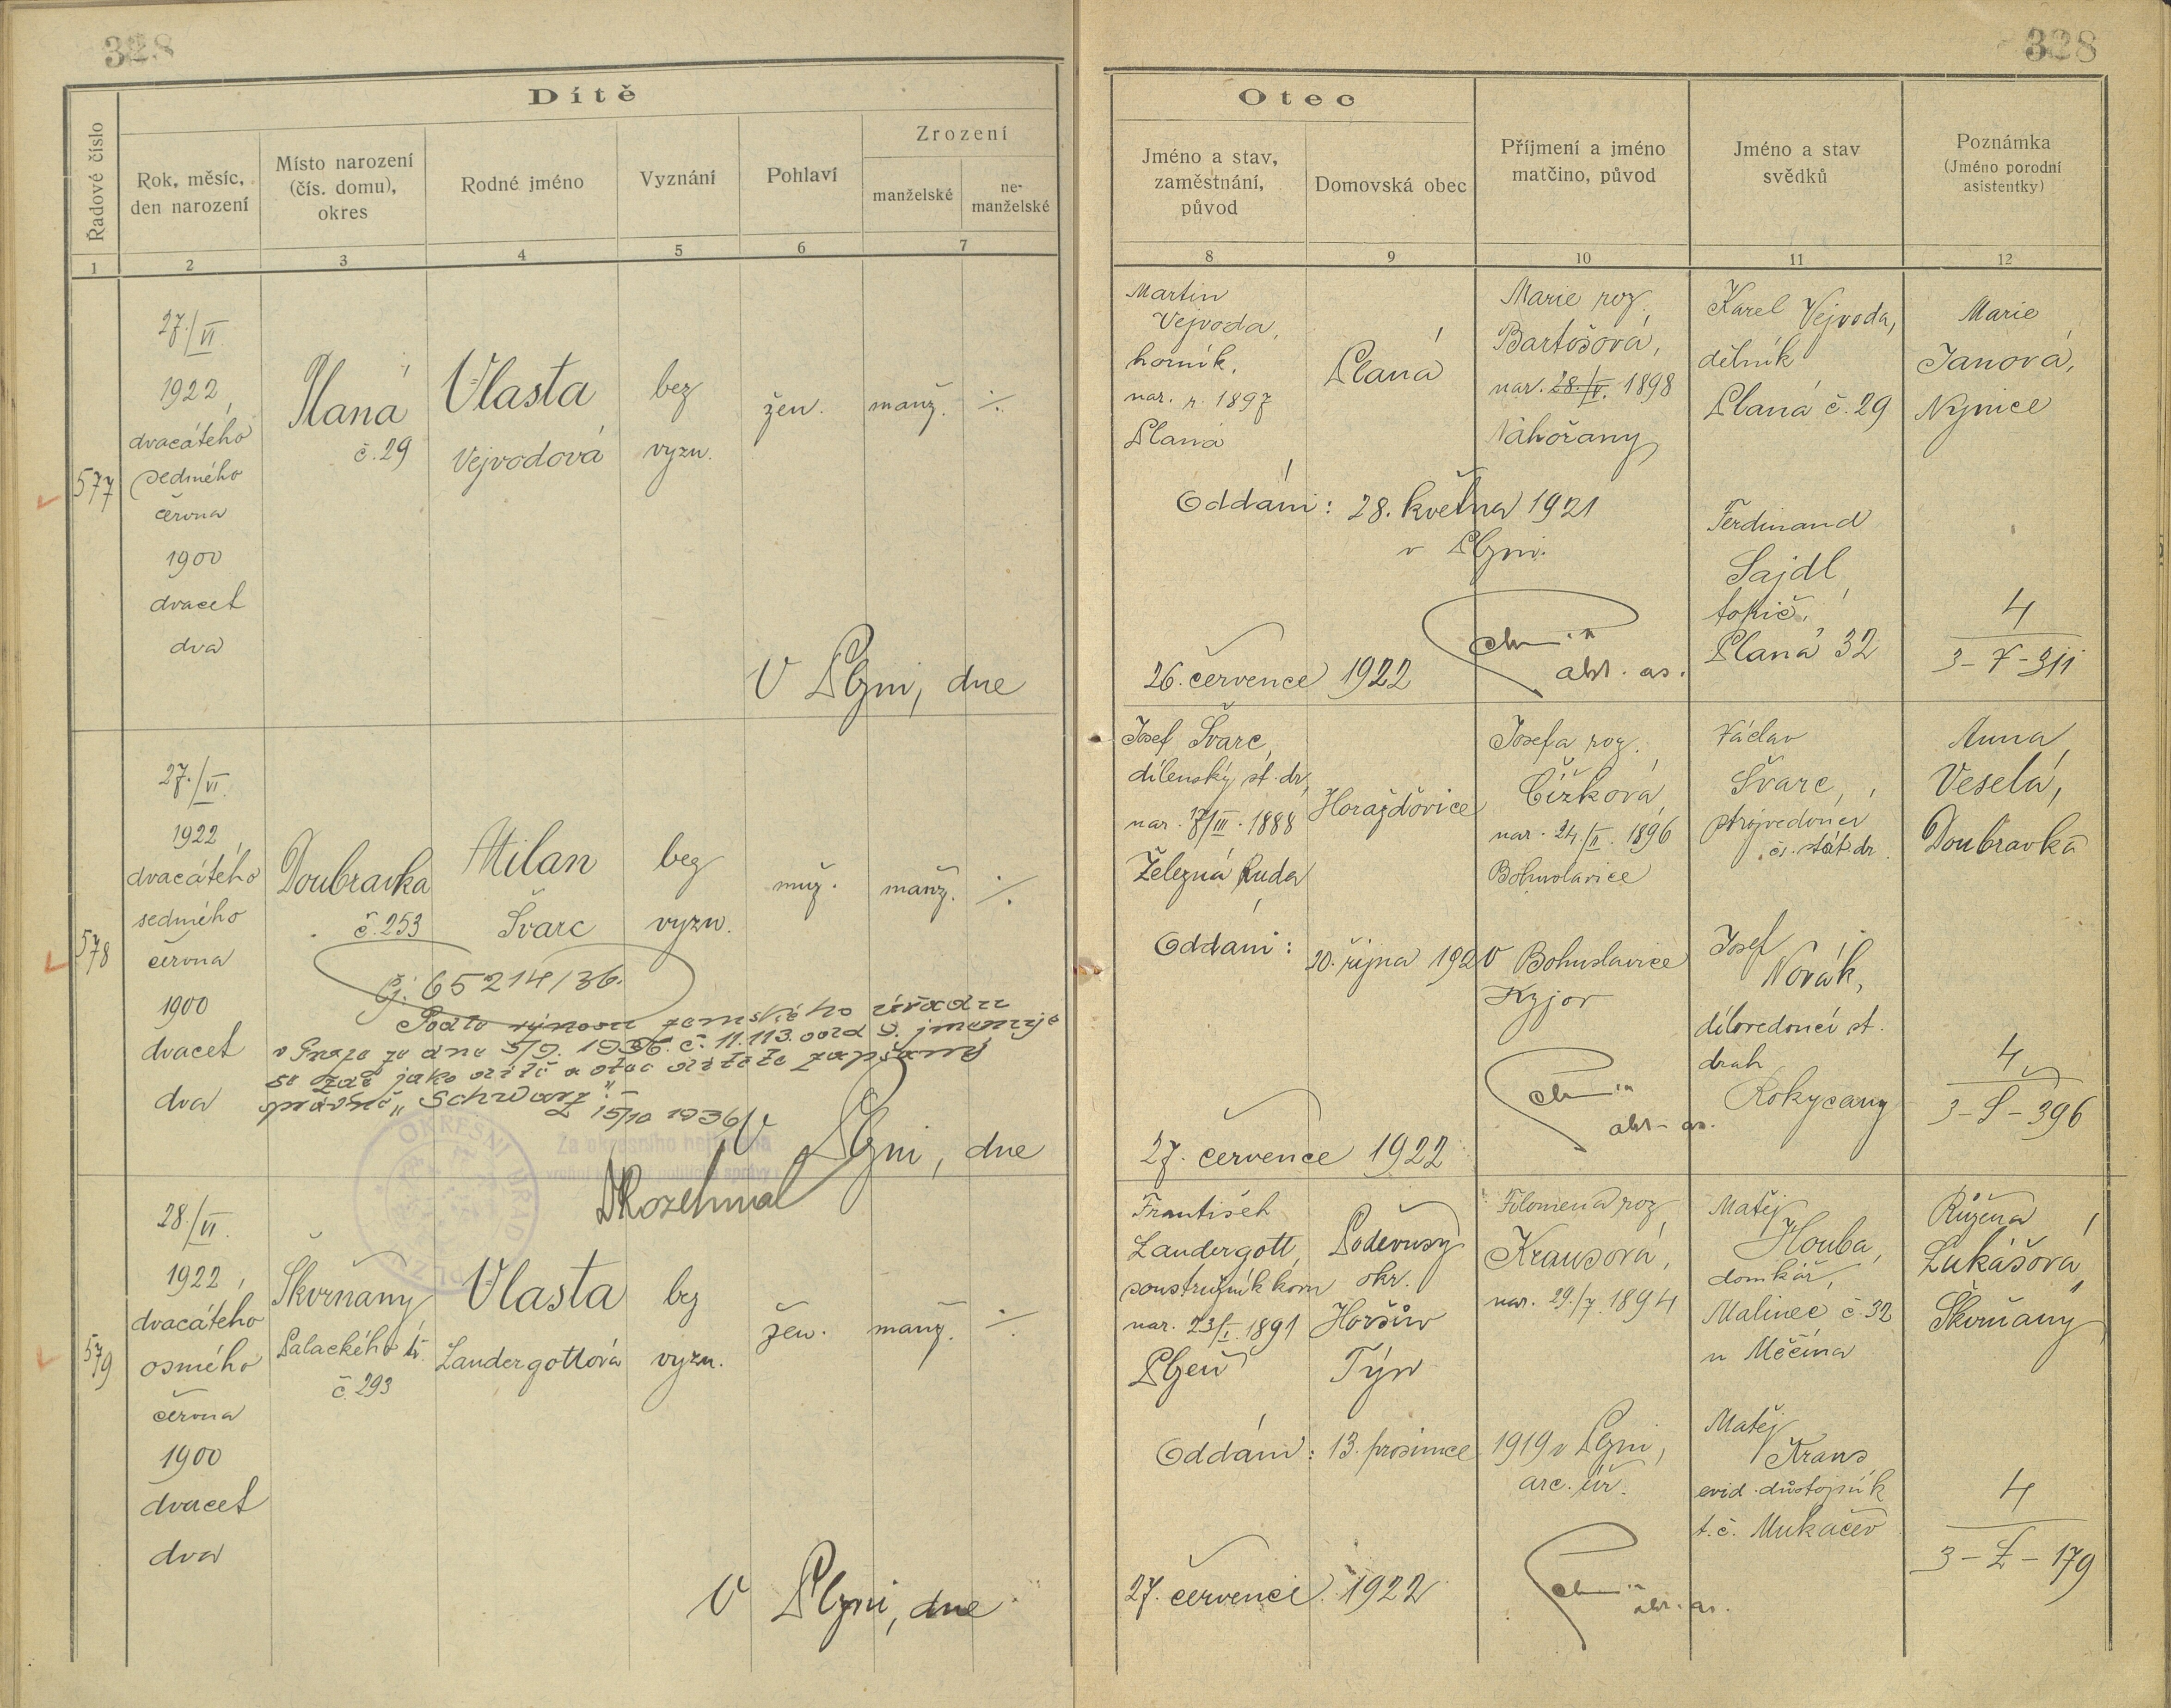 328
Dítě
Řadové číslo
Rok, měsíc,
den narození
Místo narození
(čís. domu),
okres
Rodné jméno
Vyznání
Pohlaví
Zrození
manželské
ne-
manželské
1
2
3
4
5
6
7
577
27./VI.
1922,
dvacátého
sedmého
června
1900
dvacet
dva
Planá
č. 29
Vlasta
Vejvodová
bez
vyzn.
žen.
manž.
V Plzni, dne
578
27./VI.
1922,
dvacátého
sedmého
června
1900
dvacet
dva
Doubravka
č. 253
Milan
Švarc
bez
vyzn.
muž.
manž.
čj. 65214/36.
Podle výnosu zemského úřadu
v Praze ze dne 5/9. 1936. č. 11.113. jmenuje
se jako dítě a otec dítěte zapsaný
správně „Schwarz".
15/10 1936
V Plzni, dne
Za okresního hejtmana
OKRESNÍ ÚŘAD
579
28./VI.
1922,
dvacátého
osmého
června
1900
dvacet
dva
Škvrňany
Palackého tř.
č. 293
Vlasta
Landergottová
bez
vyzn.
žen.
manž.
V Plzni, dne
328
Otec
Jméno a stav,
zaměstnání,
původ
Domovská obec
Příjmení a jméno
matčino, původ
Jméno a stav
svědků
Poznámka
(Jméno porodní
asistentky)
8
9
10
11
12
Martin
Vejvoda,
horník,
nar. r. 1897
Planá
Planá
Marie roz.
Bartošová,
nar. 28./V. 1898
Náhořany
Karel Vejvoda,
dělník
Planá č. 29
Marie
Janová,
Nýnice
Oddáni: 28. května 1921
v Plzni.
Ferdinand
Sajdl,
topič,
Planá 32
4
3-7-311
26. července 1922
Josef Švarc,
dílenský st. dr,
nar. 17/III. 1888
Železná Ruda
Horažďovice
Josefa roz.
Čížková,
nar. 24./II. 1896
Bohuslavice
Václav
Švarc,
strojvedoucí
čs. stát. dr.
Anna
Veselá,
Doubravka
Oddáni: 20. října 1920 Bohuslavice
Kyjov
Josef
Novák,
dílovedoucí st.
drah
Rokycany
4
3-S-396
27. července 1922
František
Landergott,
soustružník kovu
nar. 23/I. 1891
Plzeň
Poděvusy
okr.
Horšův
Týn
Filomena roz.
Krausová,
nar. 29./7. 1894
Matěj
Houba,
domkář,
Malinec č. 32
u Měčína
Růžena
Lukášová,
Škvrňany
Oddáni: 13. prosince 1919 v Plzni,
arc. úř.
Matěj
Kraus
evid. důstojník
t. č. Mukačevo
4
3-L-179
27. července 1922